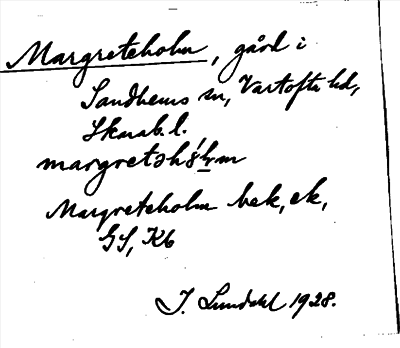 Margreteholm, gård i
Sandhems sn, Vartofta hd,
Skarab. l.
Margreteholm bek, ek,
GS, Kb
J. Lundahl 1928.